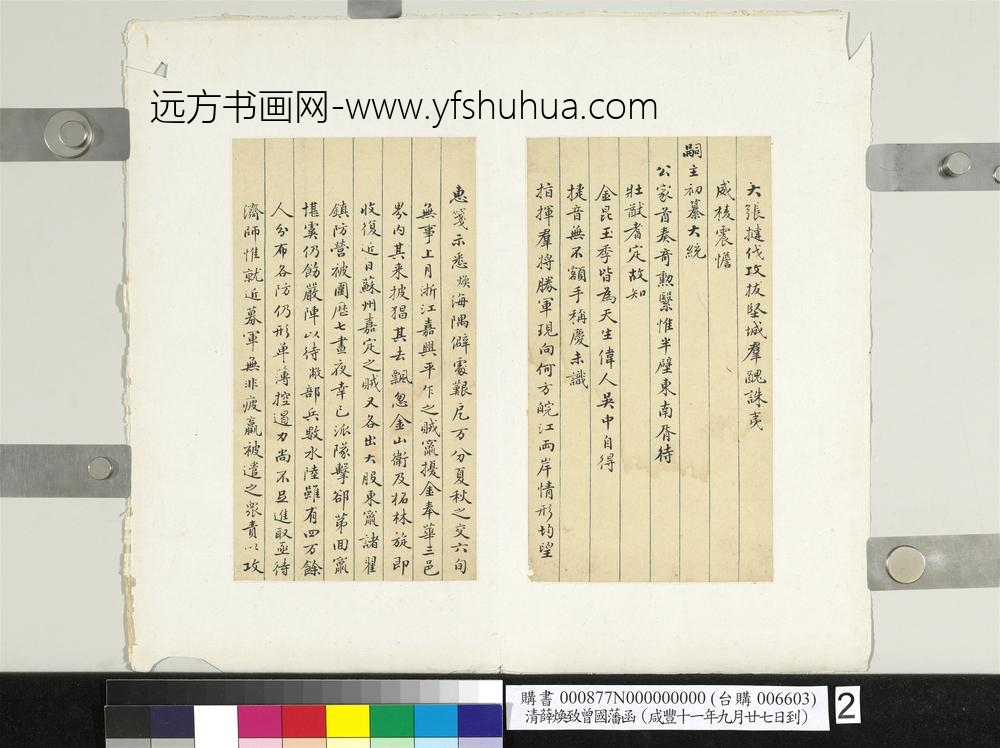 远方书画网-www.yfshuhua.com
大張撻伐攻拔堅城羣醜誅夷
威棱震憺
嗣主初纂大統
公家首奏奇勲緊惟半壁東南胥待
壯猷耆定故知
金昆玉季皆為天生偉人吳中自得
捷音無不額手稱慶未識
指揮羣將勝軍現向何方皖江兩岸情形均望
惠箋示悉煥海隅僻處艱危万分夏秋之交六旬
無事上月浙江嘉興平乍之賊竄擾金奉華三邑
界內其来披猖其去飄忽金山衛及柘林旋即
收復近日蘇州嘉定之賊又各出大股東竄諸翟
鎮防營被圍歷七晝夜幸已派隊擊卻苐回竄
堪虞仍飭嚴陣以待敝部兵數水陸雖有四万餘
人分布各防仍形單薄控遏力尚不足進取亟待
濟師惟就近募軍無非疲羸被遣之眾責以攻
購書 000877N000000000 (台購 006603)
清薛煥致曾國藩函（咸豐十一年九月廿七日到）
2